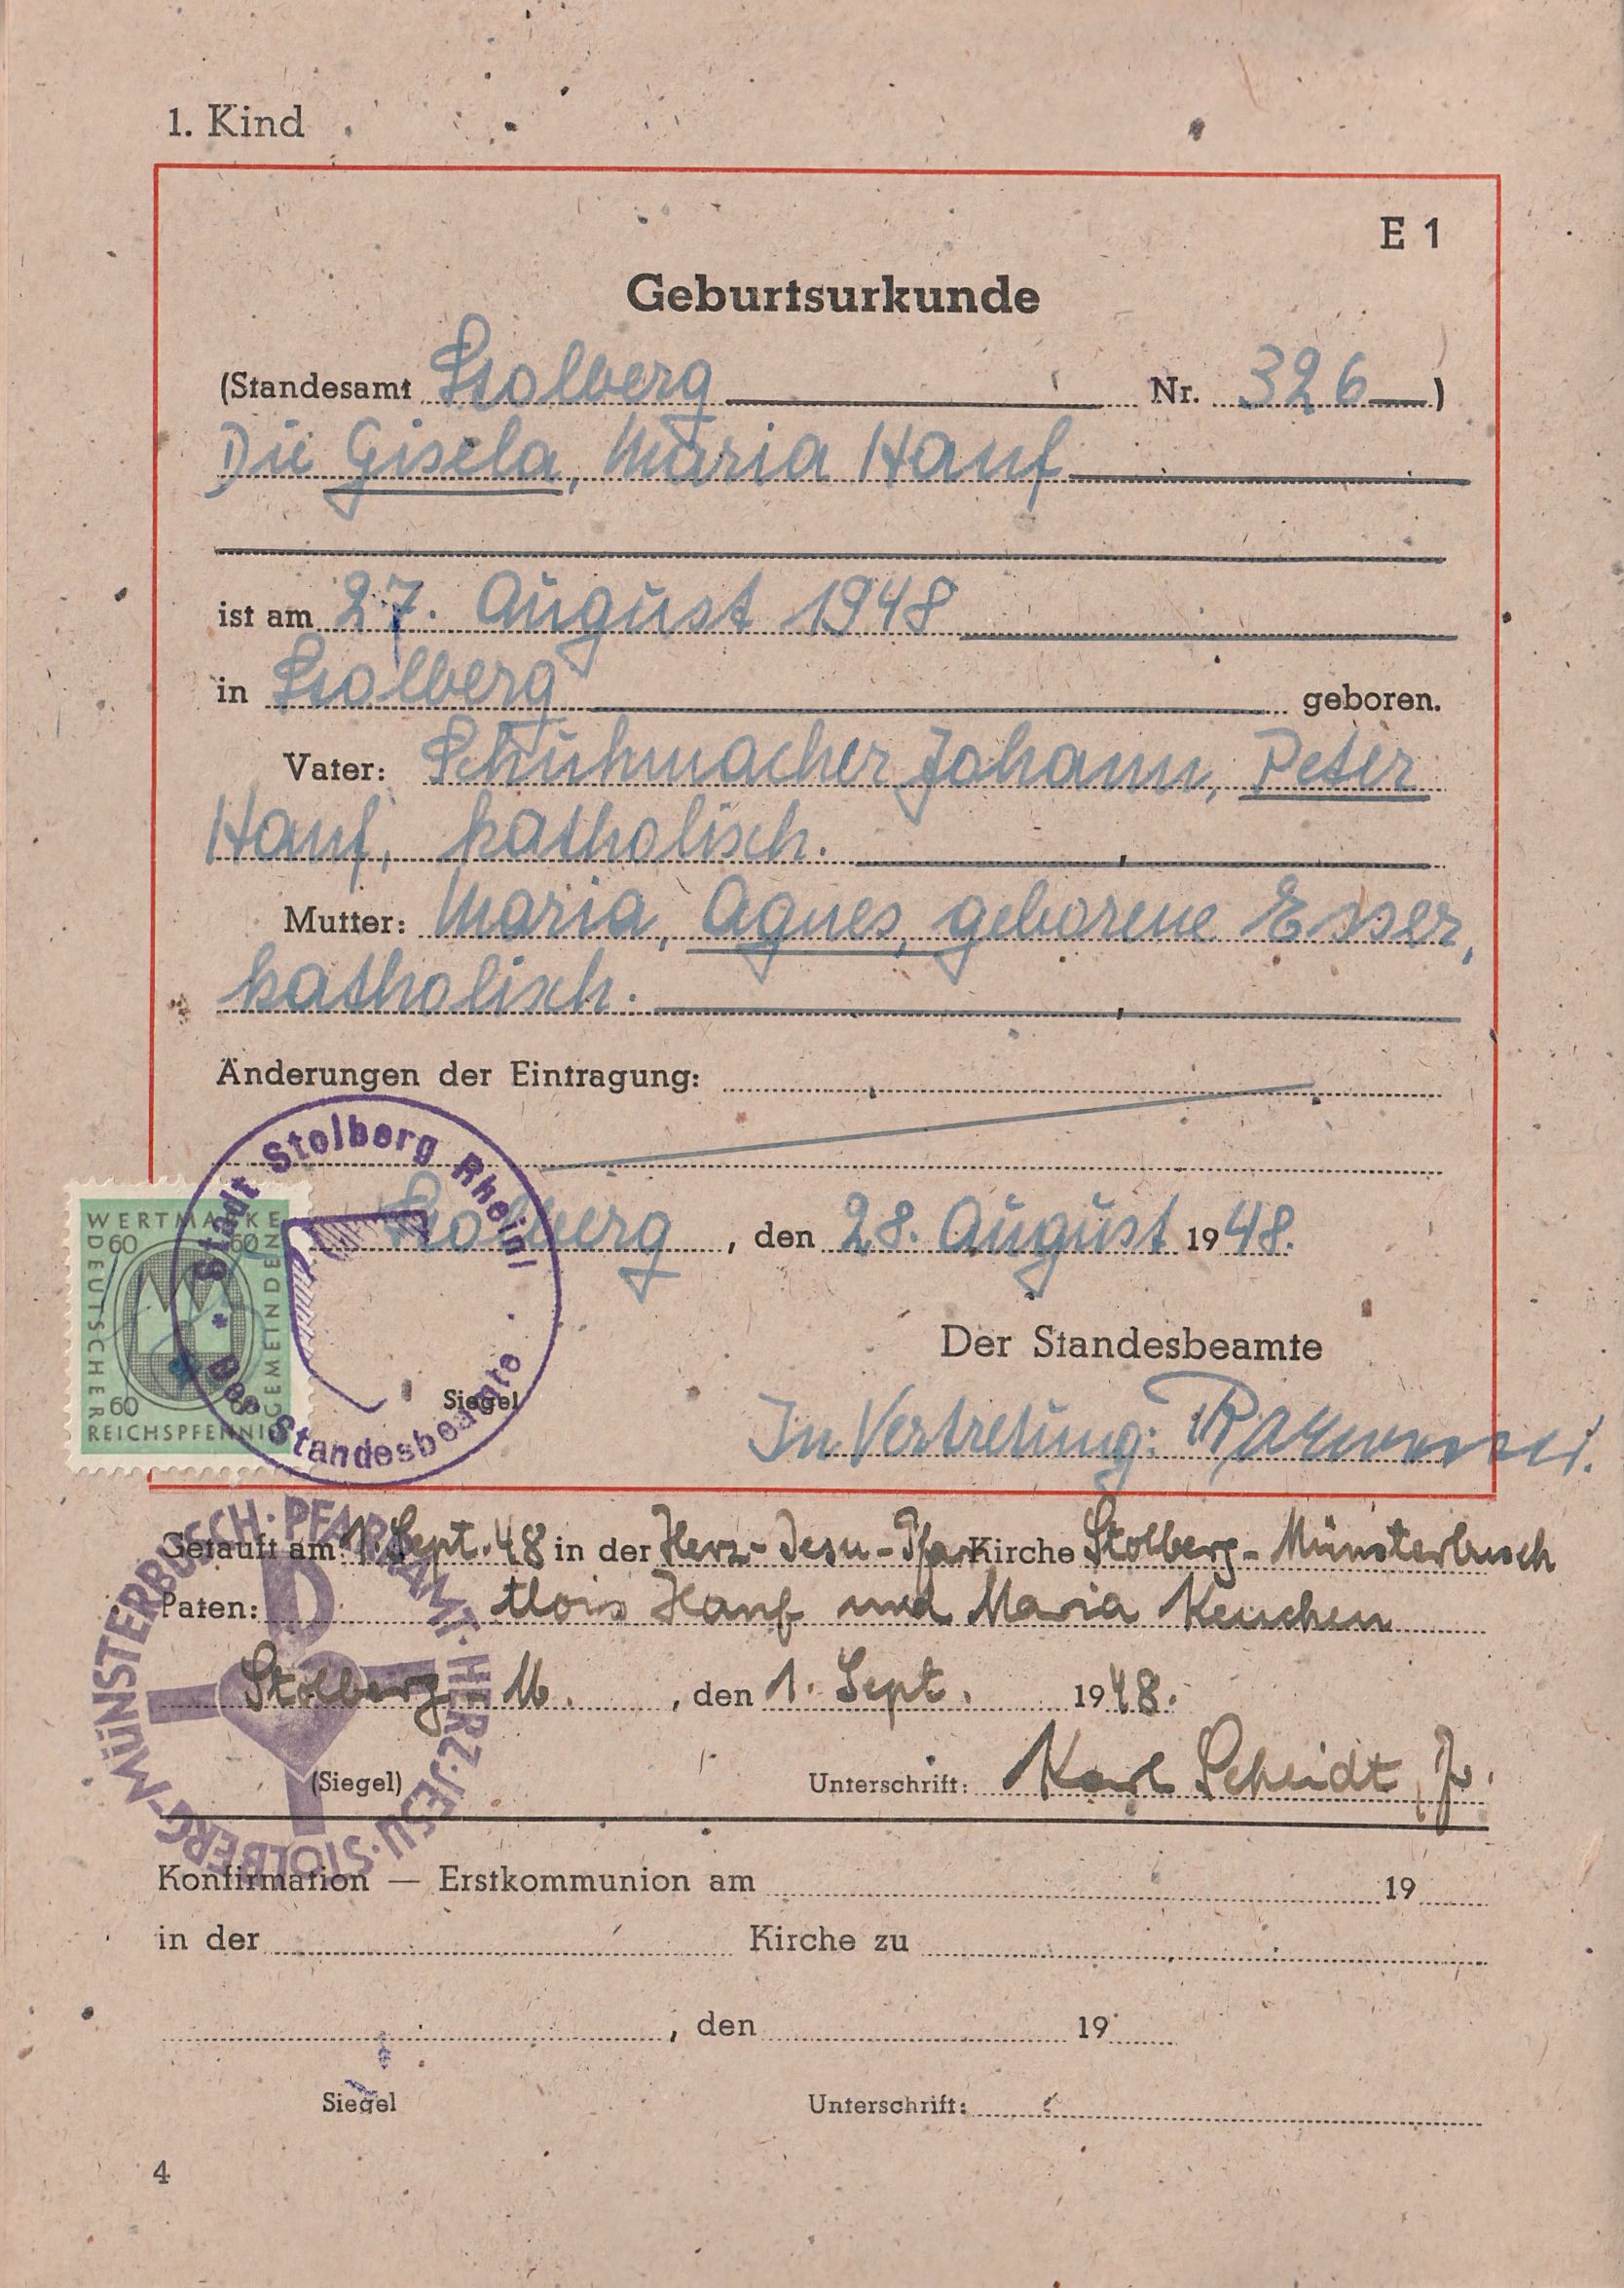 1. Kind
E 1
Geburtsurkunde
(Standesamt Stolberg Nr. 326 )
Die Gisela, Maria Hanf
ist am 27. August 1948
in Stolberg geboren.
Vater: Schuhmacher Johann, Peter
Hanf, katholisch.
Mutter: Maria, Agnes, geborene Esser,
katholisch.
Änderungen der Eintragung:
Stolberg, den 28. August 1948.
Stadt Stolberg Rheinl
Der Standesbeamte
WERTMARKE
DEUTSCHER
GEMEINDEN
60 60
60 60
REICHSPFENNIG
Siegel
Der Standesbeamte
In Vertretung:
Getauft am 1. Sept. 48 in der Herz-Jesu-Pfarr Kirche Stolberg-Münsterbusch
Paten: Alois Hanf und Maria Keuchen
Stolberg M., den 1. Sept. 1948.
PFARRAMT · HERZ-JESU · STOLBERG-MÜNSTERBUSCH ·
(Siegel) Unterschrift: Karl Scheidt
Konfirmation — Erstkommunion am 19
in der Kirche zu
, den 19
Siegel Unterschrift:
4